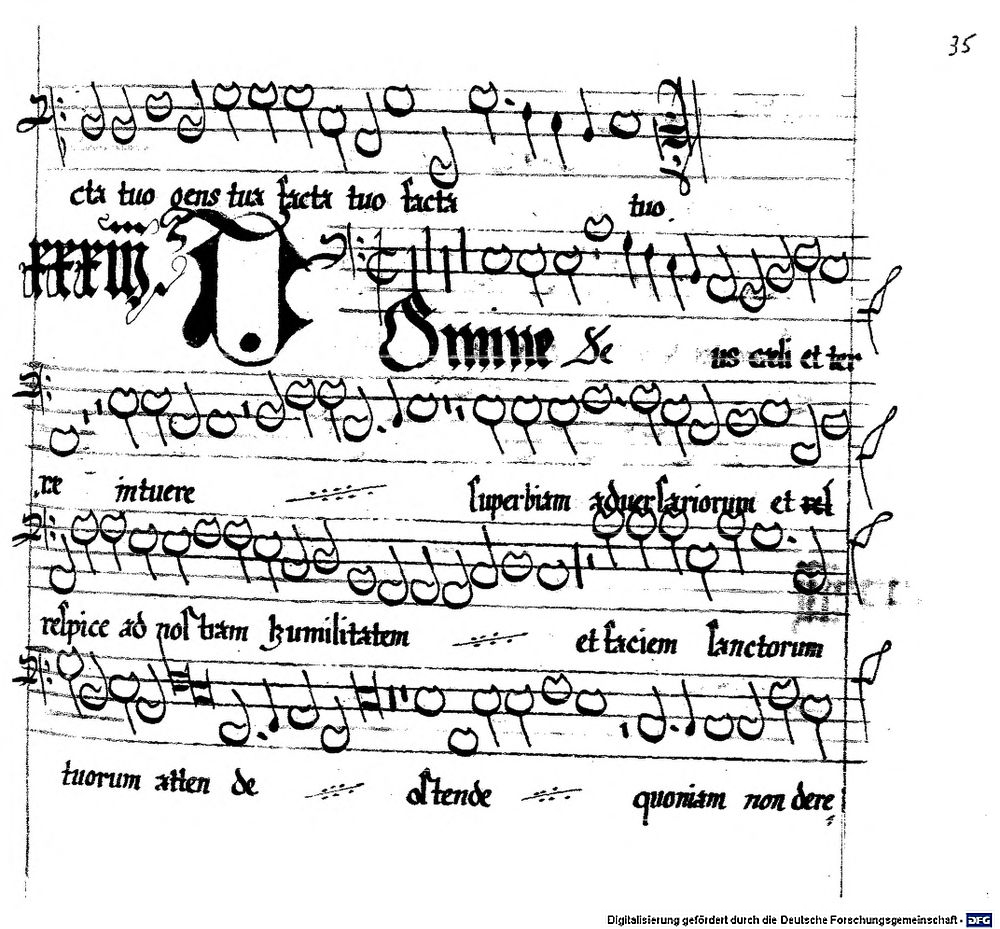 35
cta tuo gens tua facta tuo facta tuo.
xxxiiij.
D Domine De us cæli et ter
re intuere superbiam aduersariorum et
respice ad nostram humilitatem et faciem sanctorum
tuorum atten de ostende quoniam non dere
Digitalisierung gefördert durch die Deutsche Forschungsgemeinschaft - DFG